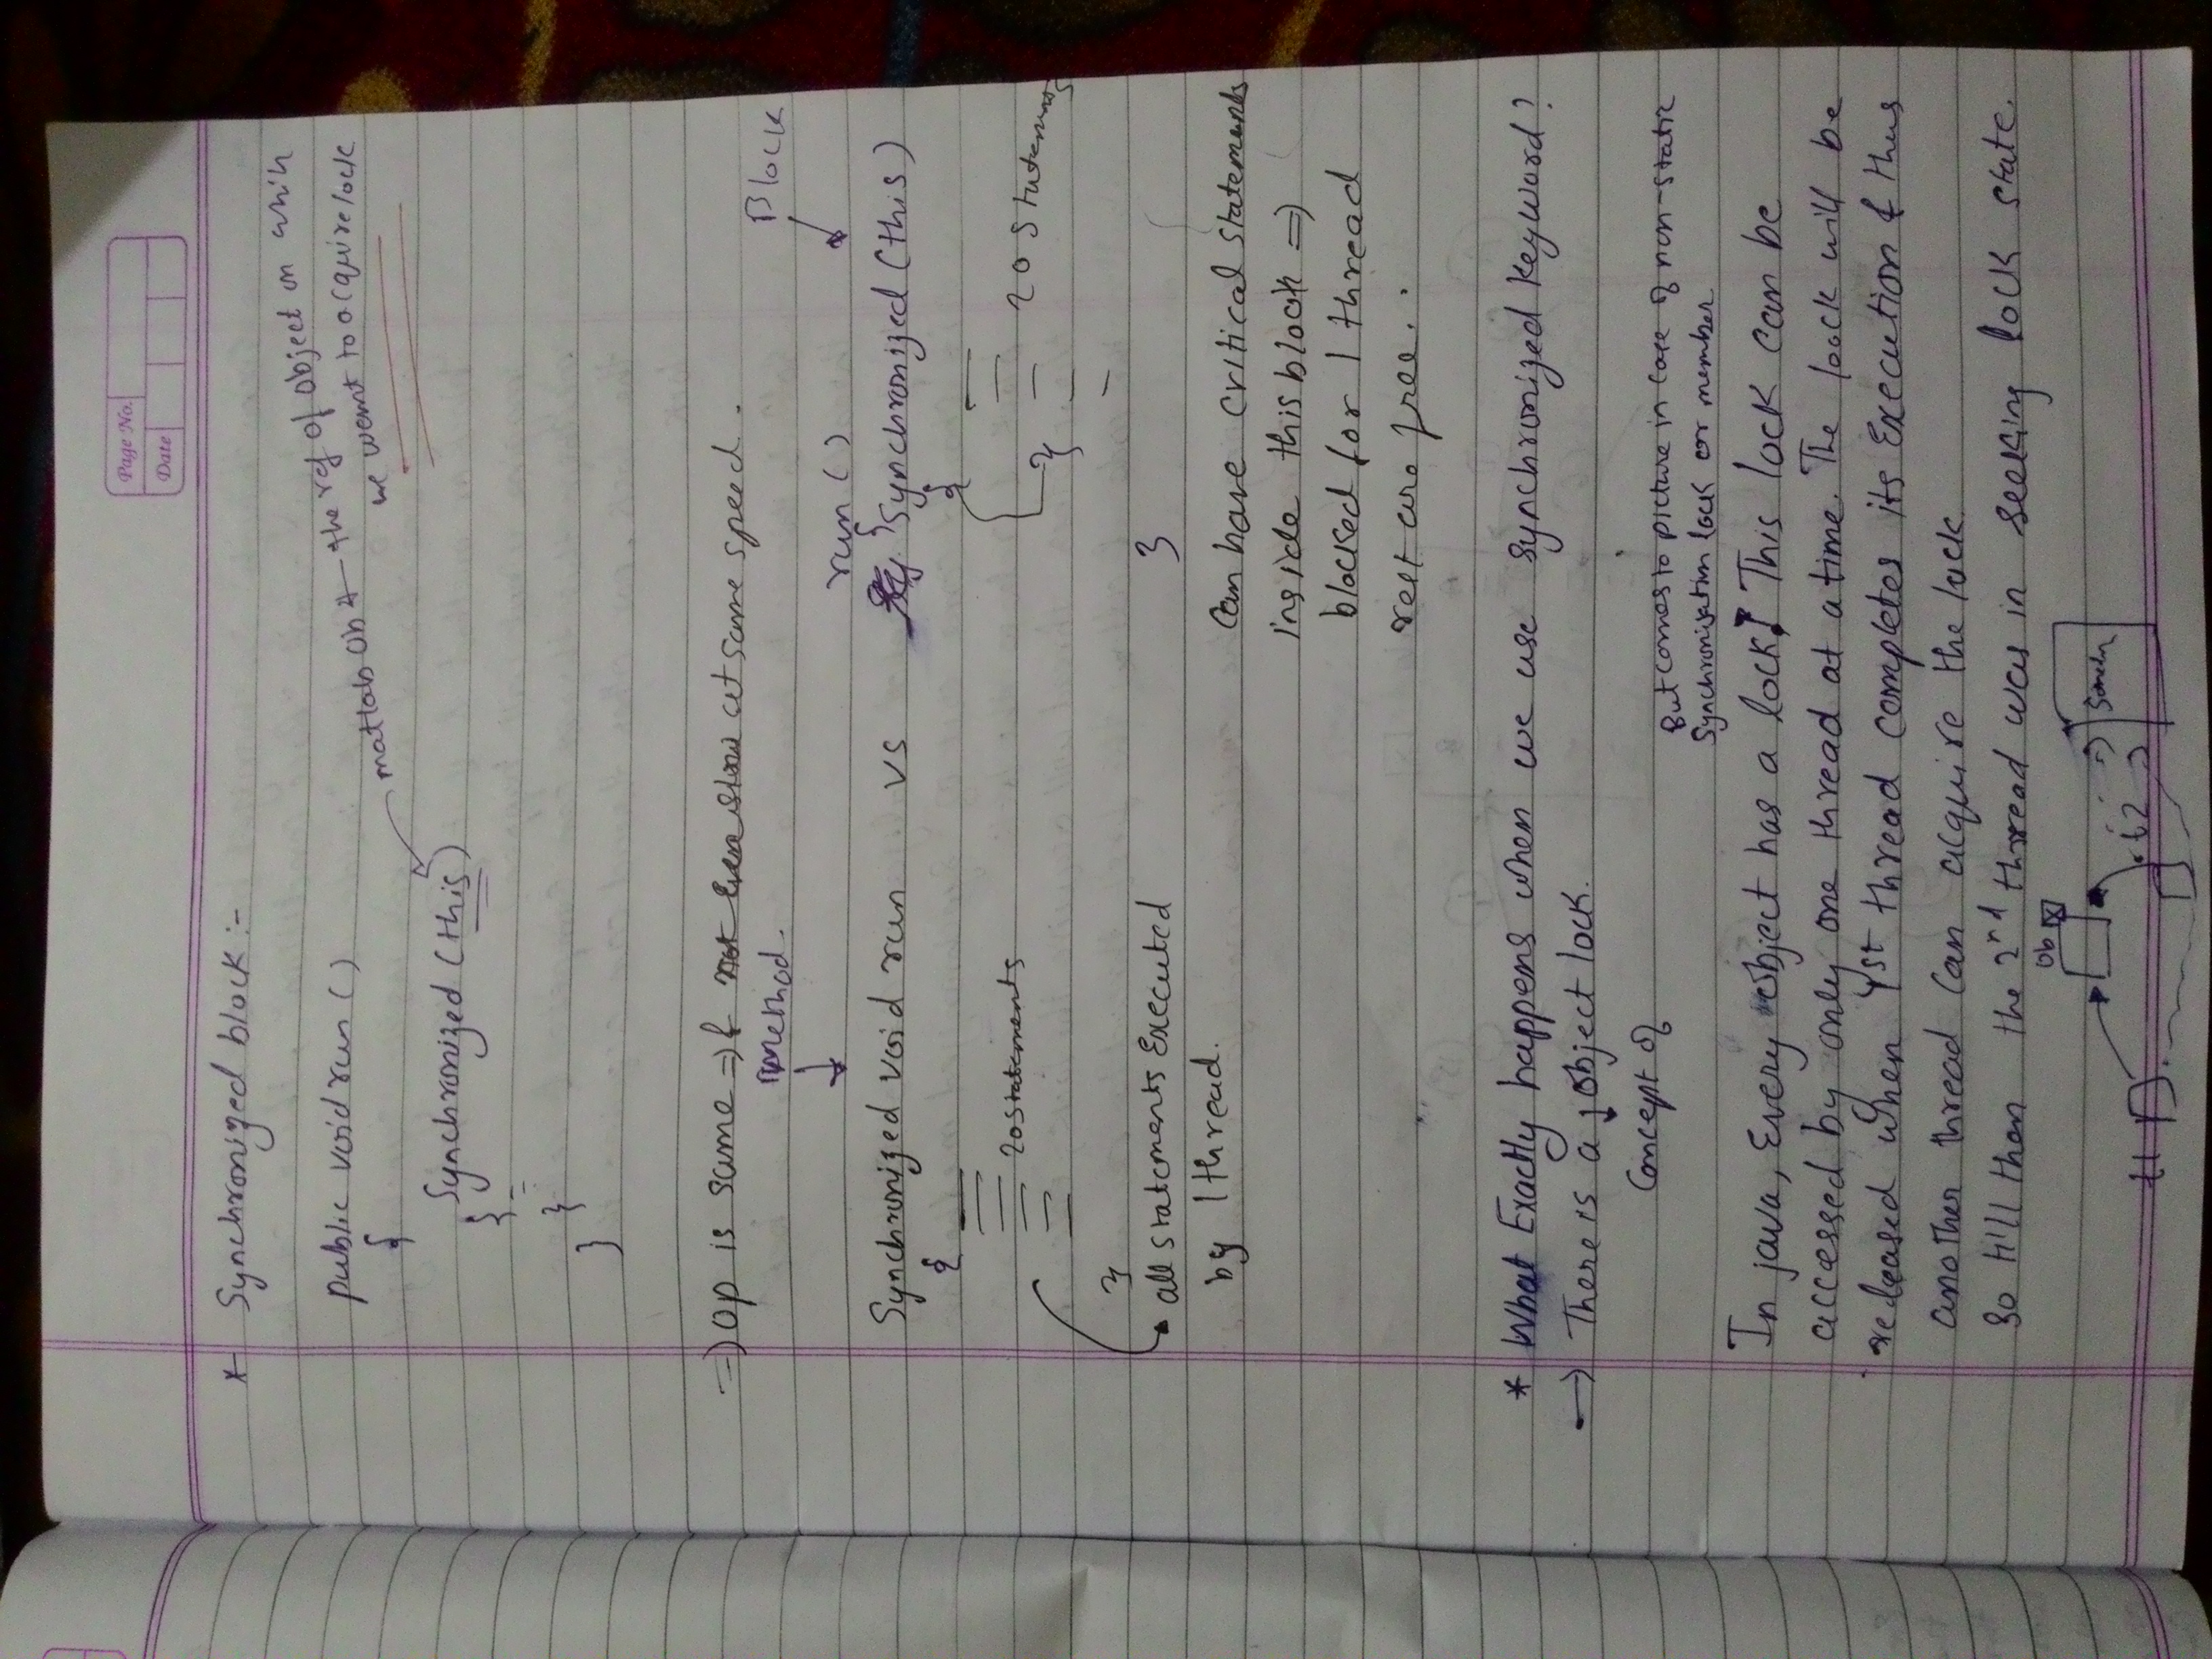 Page No.
Date
* Synchronized block :-
public void run ()
matlab Ob ← the ref of object on which
we want to acquire lock
{
Synchronized (this)
{
}
}
⇒ op is same ⇒ & at same speed.
method.
Block
↓
run ()
Synchronized void run vs { Synchronized (this)
{
{
20 statements
20 Statements
}
}
→ all statements Executed
}
by 1 thread.
Can have critical statements
inside this block ⇒
blocked for 1 thread
rest are free.
* What Exactly happens when we use synchronized keyword?
→ There is a object lock.
Concept of
But comes to picture in case of non-static
Synchronisation lock or member
In java, Every object has a lock. This lock can be
accessed by only one thread at a time. The loock will be
released when 1st thread completes its Execution & thus
another thread can acquire the lock.
So till then the 2nd thread was in seeking lock state.
Ob
t1
t2